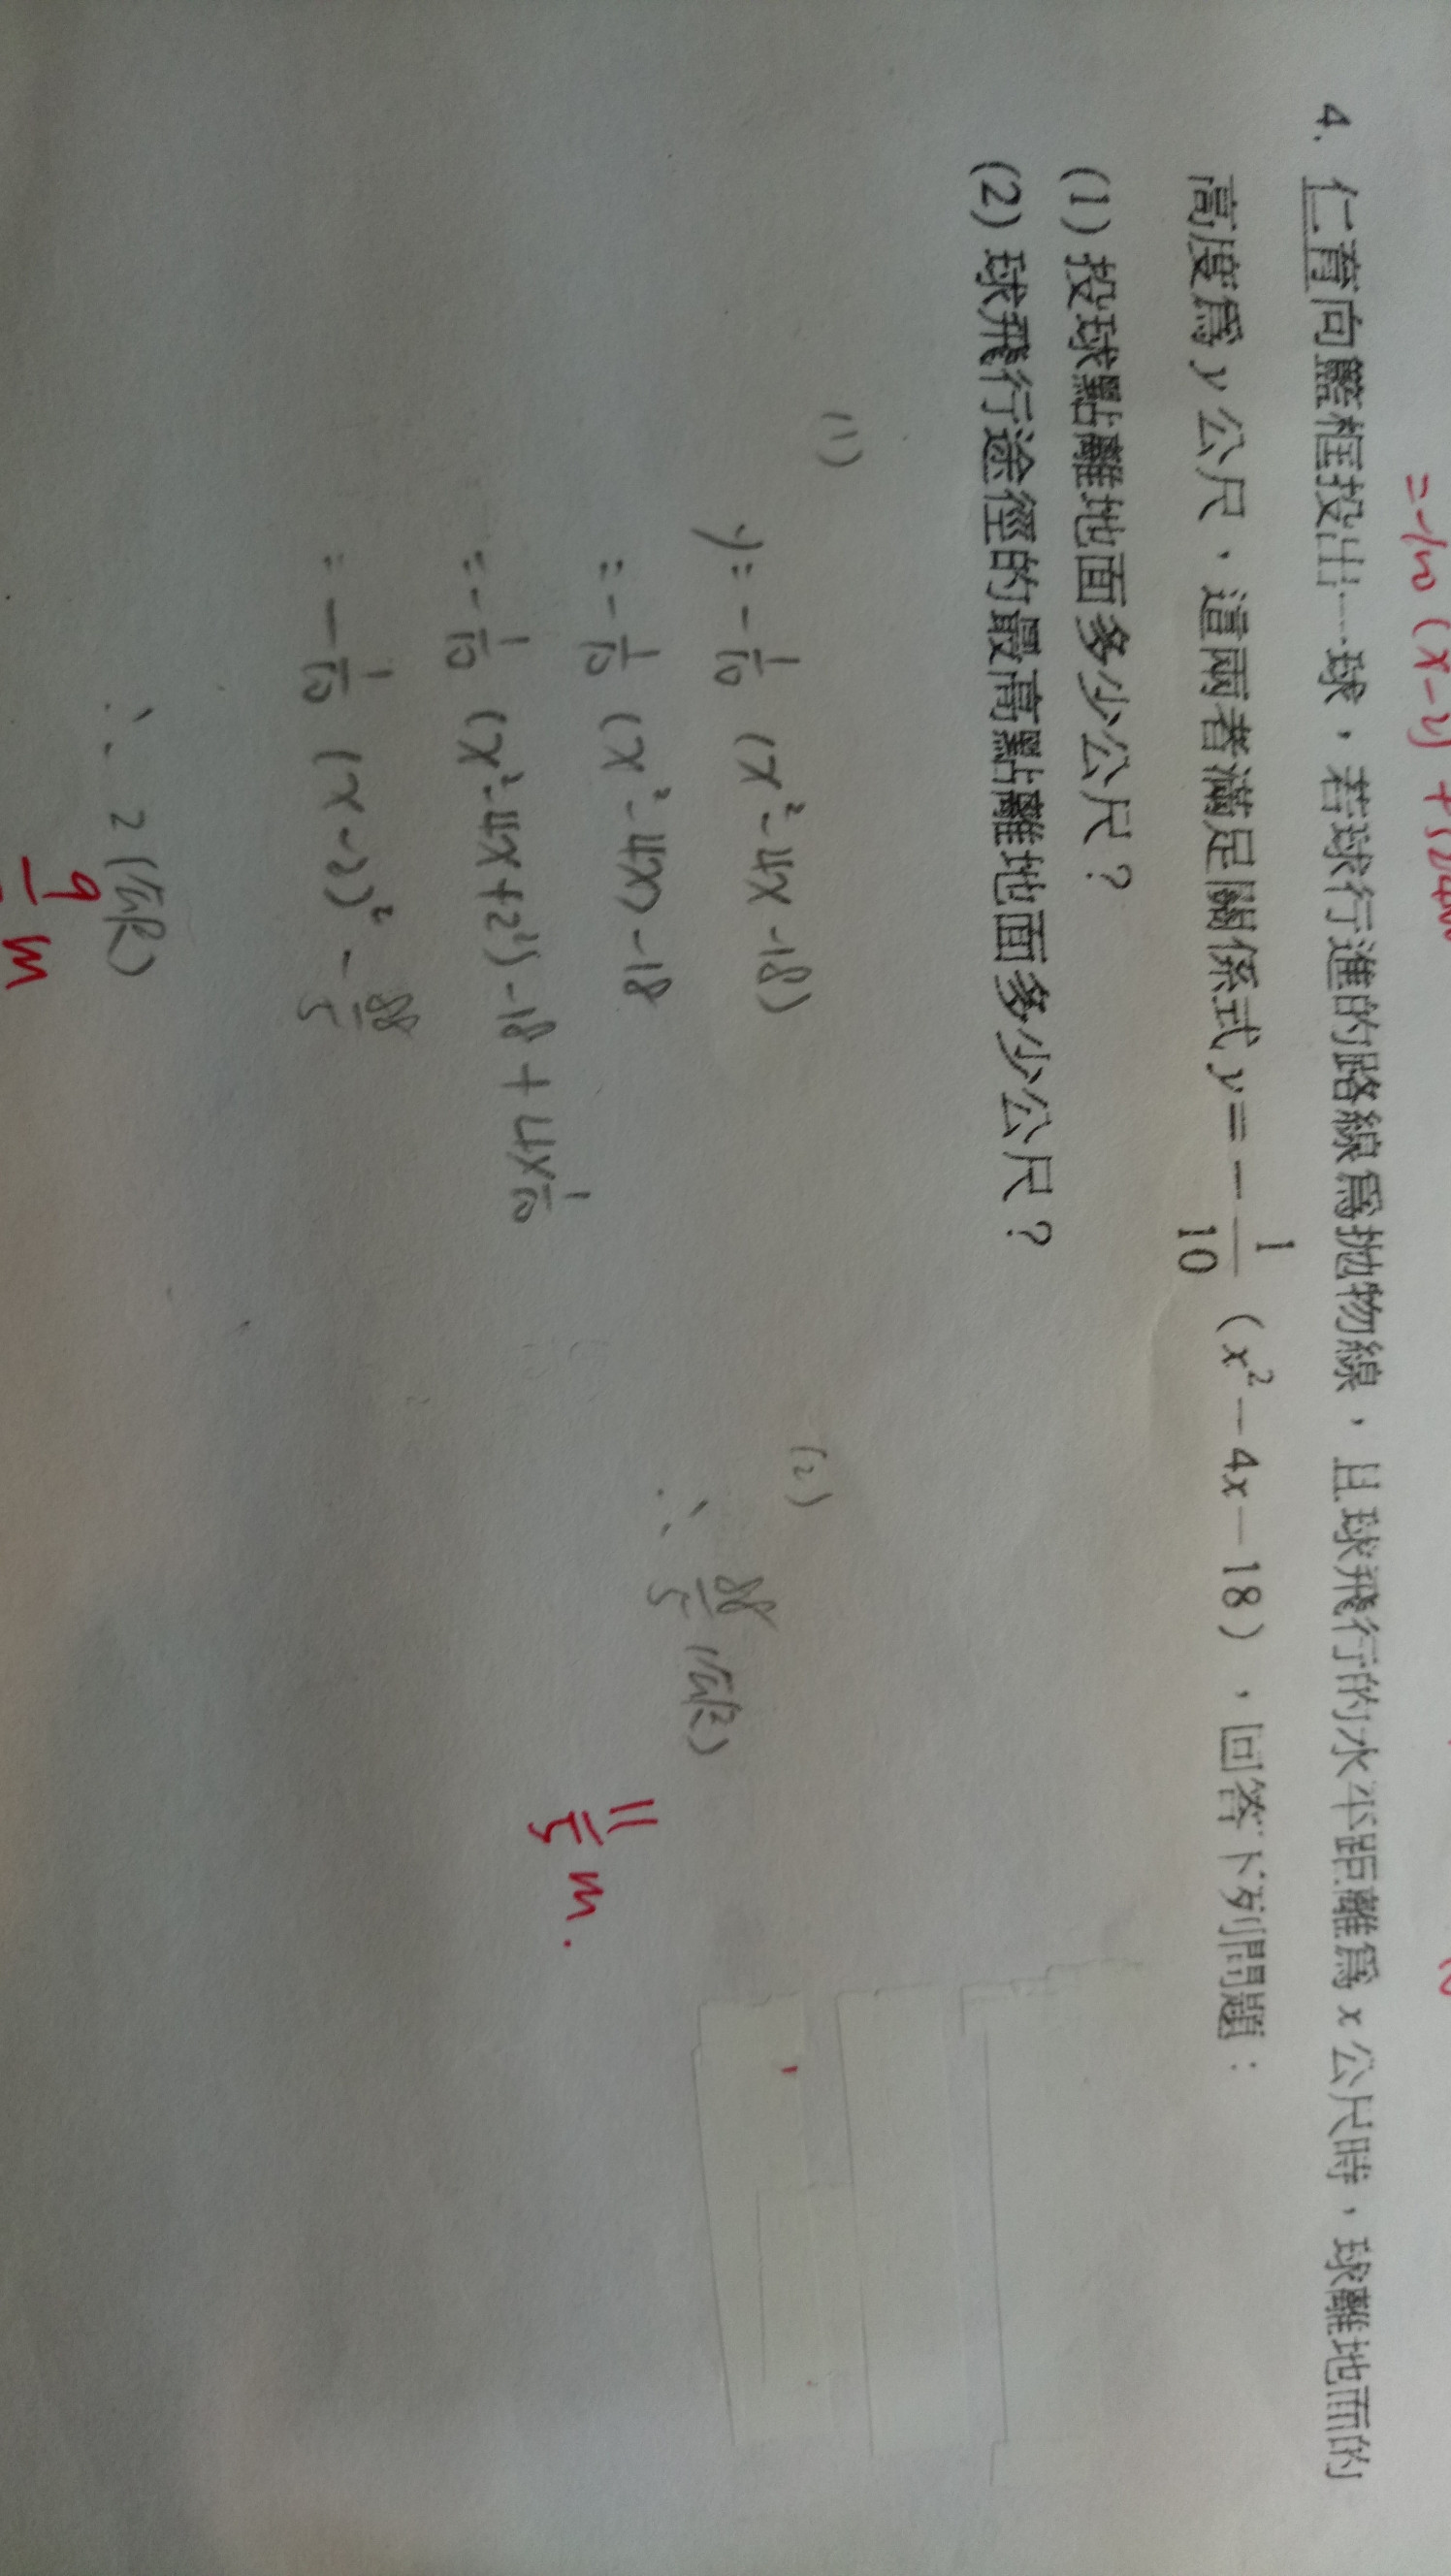 =-100(x-2)
4. 仁育向籃框投出一球，若球行進的路線為拋物線，且球飛行的水平距離為 x 公尺時，球離地面的
高度為 y 公尺，這兩者滿足關係式 y = - 1/10 (x² - 4x - 18)，回答下列問題：
(1) 投球點離地面多少公尺？
(2) 球飛行途徑的最高點離地面多少公尺？
(1)
y = - 1/10 (x² - 4x - 18)
= - 1/10 (x² - 4x) - 18
= - 1/10 (x² - 4x + 2²) - 18 + 4x 1/10
= - 1/10 (x - 2)² - 88/5
∴ 2 (公尺)
9
m
(2)
∴ 88/5 (公尺)
11/5 m.